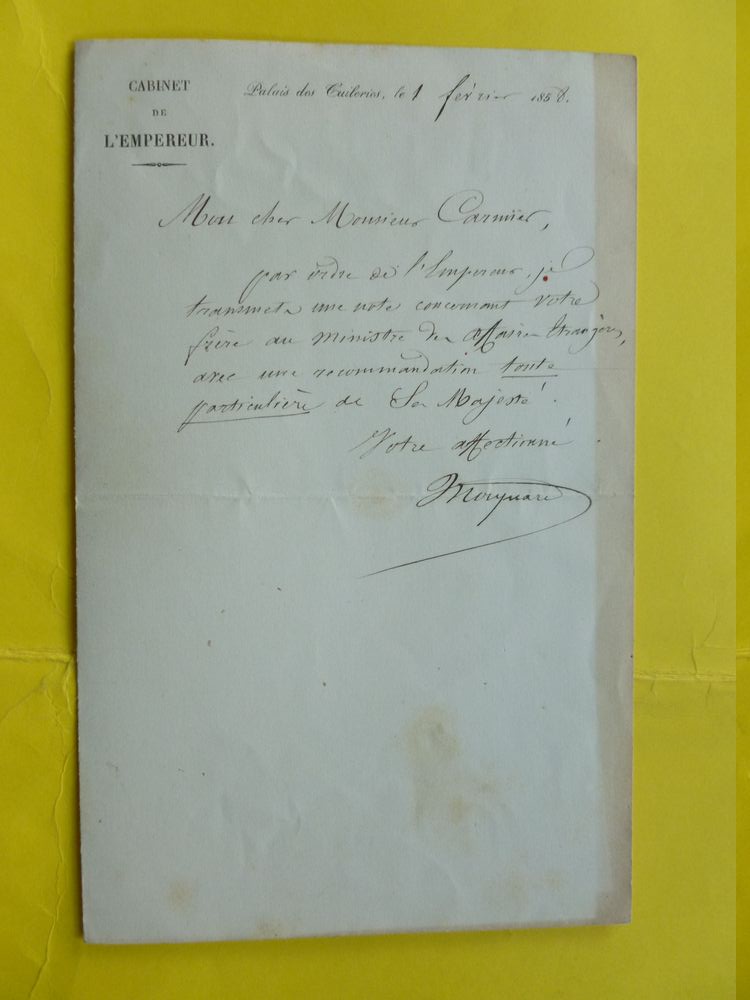 CABINET
DE
L'EMPEREUR.
Palais des Tuileries, le 1 février 1858.
Mon cher Monsieur Carmier,
par ordre de l'Empereur, je
transmets une note concernant votre
frère au ministre des affaires Etrangères,
avec une recommandation toute
particulière de Sa Majesté.
Votre affectionné
Mocquard